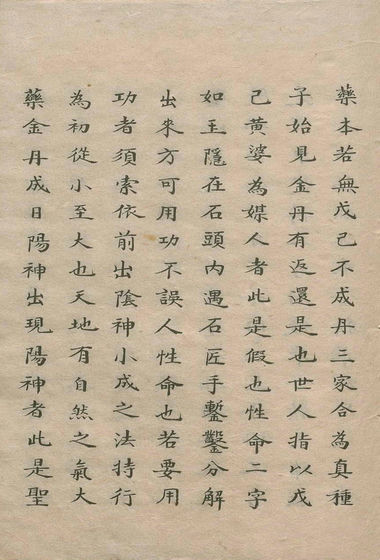 藥本若無戊己不成丹三家合為真種
子始見金丹有返還是也世人指以戊
己黃婆為媒人者此是假也性命二字
如玉隱在石頭內遇石匠手鏨鑿分解
出來方可用功不誤人性命也若要用
功者須索依前出陰神小成之法持行
為初從小至大也天地有自然之氣大
藥金丹成日陽神出現陽神者此是聖